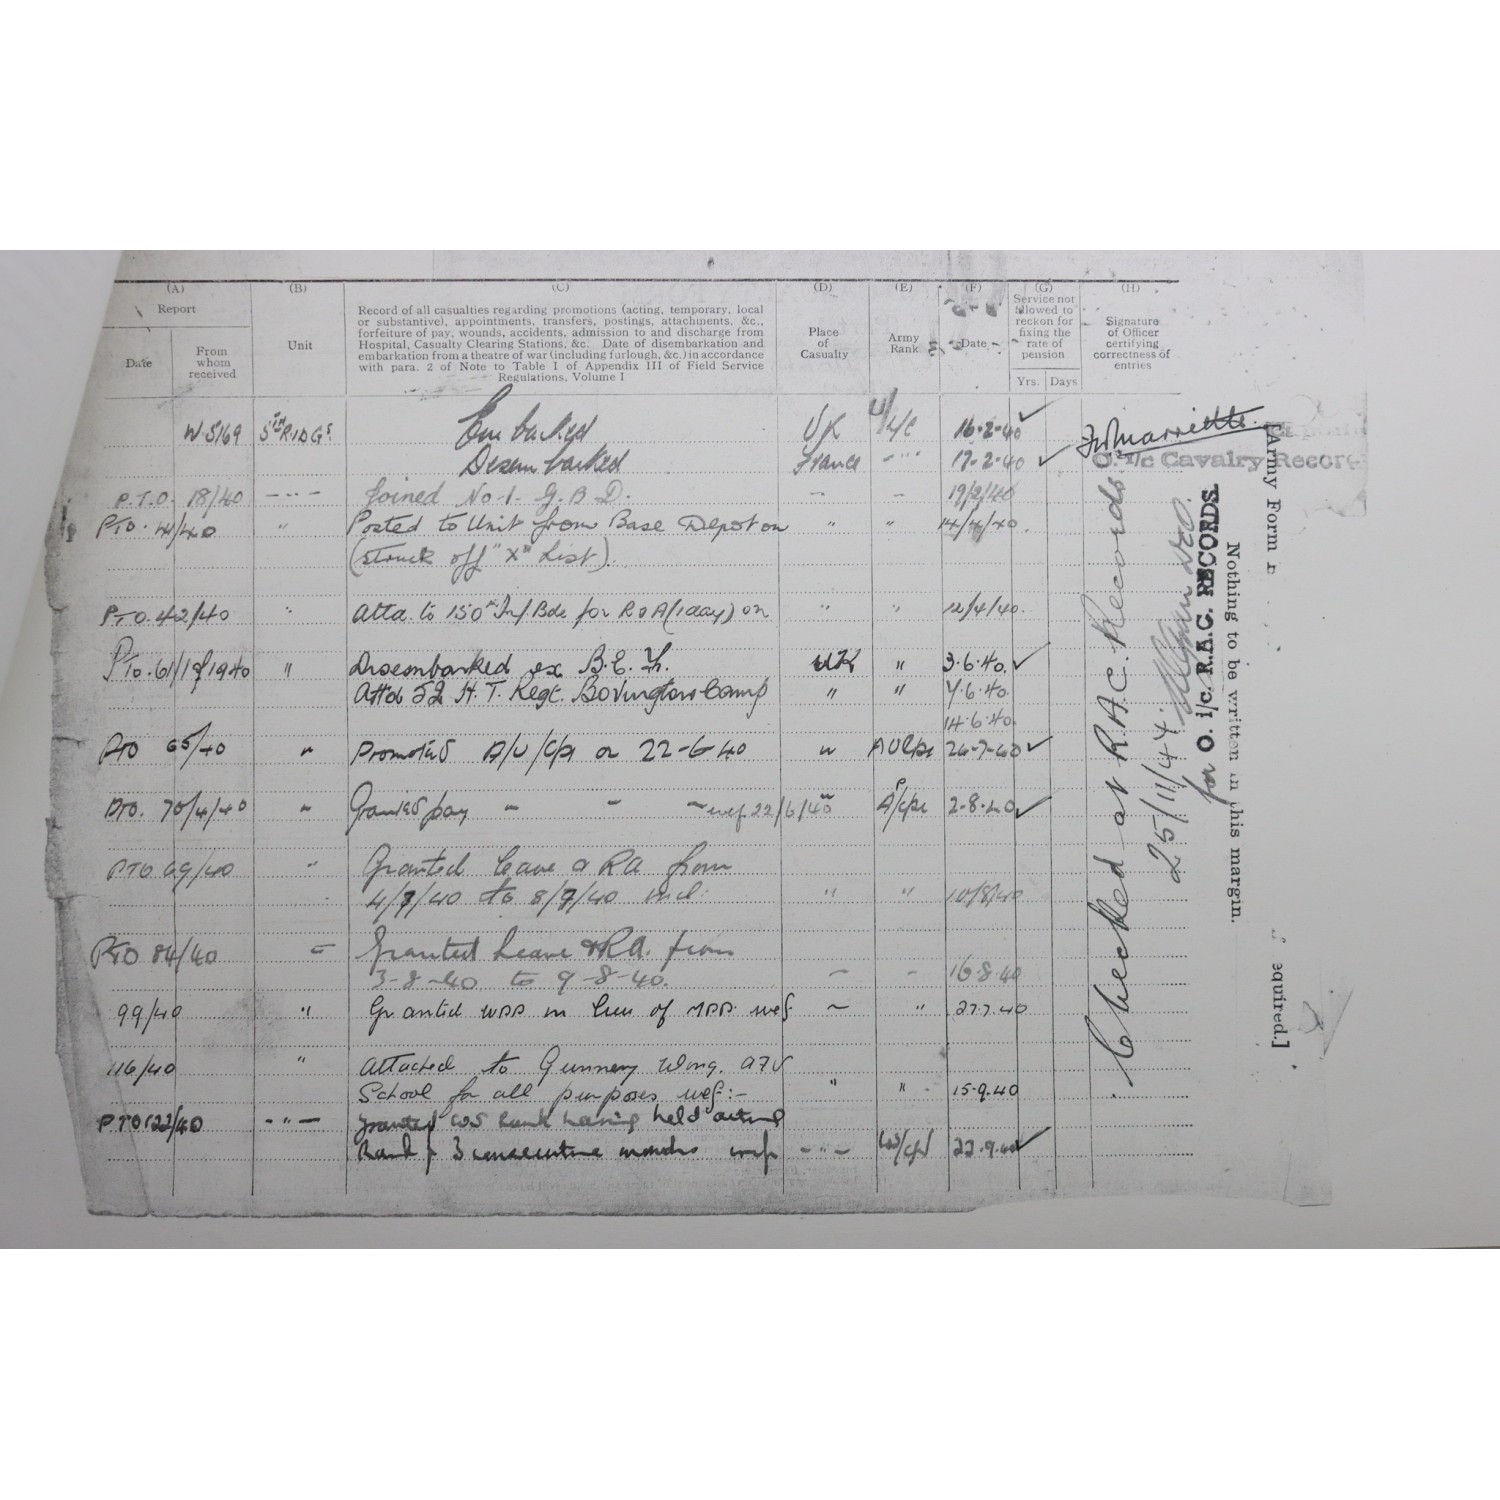 (A) (B) (C) (D) (E) (F) (G) (H)
Report
Date
From whom received
Unit
Record of all casualties regarding promotions (acting, temporary, local
or substantive), appointments, transfers, postings, attachments, &c.,
forfeiture of pay, wounds, accidents, admission to and discharge from
Hospital, Casualty Clearing Stations, &c. Date of disembarkation and
embarkation from a theatre of war (including furlough, &c.) in accordance
with para. 2 of Note to Table I of Appendix III of Field Service
Regulations, Volume I
Place of Casualty
Army Rank
Date
Service not allowed to reckon for fixing the rate of pension
Yrs. Days
Signature of Officer certifying correctness of entries
W.5169 5th R.I.D.Gs. Embarked UK U/L/C 16.2.40
Disembarked France " 17.2.40
O. i/c Cavalry Record
P.T.O. 18/40 " Joined No. 1. G.B.D. 19/2/40
PTO. 41/40 " Posted to Unit from Base Depot on " " 14/4/40
(struck off "X" List).
PTO. 42/40 " Atta. to 150th Inf. Bde for R O A (1 day) on " " 12/4/40.
PTO. 61/1 of 1940 " Disembarked ex B.E.F. UK " 3.6.40.
Att'd 52 H.T. Regt. Bovington Camp " " 7.6.40.
14.6.40.
PTO 65/40 " Promoted A/U/Cpl on 22-6-40 " A U Cpl 24-7-40
PTO. 70/4/40 " Granted pay " " " wef 22/6/40 A/P/Cpl 2.8.40
PTO 69/40 " Granted leave & RA from
4/7/40 to 8/7/40 incl: " " 10/8/40
PTO 84/40 " Granted Leave & RA. from
3-8-40 to 9-8-40. " " 16.8.40
99/40 " Granted WPP in lieu of MPP. wef. " " 27.7.40
116/40 " Attached to Gunnery Wing. AFV
School for all purposes wef:- " " 15.9.40
PTO 122/40 " Granted WS Rank having held acting
Rank for 3 consecutive months wef " W/Cpl 22.9.40
Checked at R.A.C. Records
25/11/44.
for O. i/c. R.A.C. RECORDS.
Nothing to be written in this margin.
[Army Form
equired.]